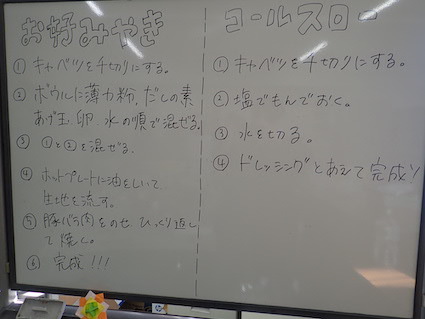 お好みやき
① キャベツを千切りにする。
② ボウルに薄力粉、だしの素
あげ玉、卵、水の順で混ぜる。
③ ①と②を混ぜる。
④ ホットプレートに油をしいて、
生地を流す。
⑤ 豚バラ肉をのせ、ひっくり返し
て焼く。
⑥ 完成!!!
コールスロー
① キャベツを千切りにする。
② 塩でもんでおく。
③ 水を切る。
④ ドレッシングとあえて完成!